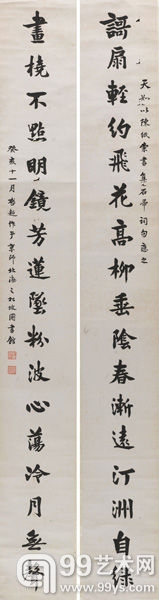 天以陳紙索書集石帚詞句應之
謌扇輕約飛花高柳垂陰春漸遠汀洲自綠
畫橈不點明鏡芳蓮墜粉波心蕩冷月無聲
癸亥十一月啓超作于京師北海之松坡圖書館
99艺术网
www.99ys.com